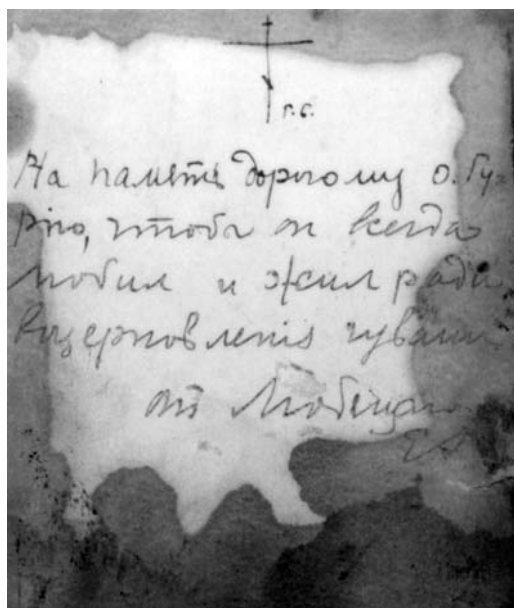 г.с.
На память дорогому о. Гу-
рію, чтобы он всегда
любил и жил ради
возерновленія чуваш
от Любящаго